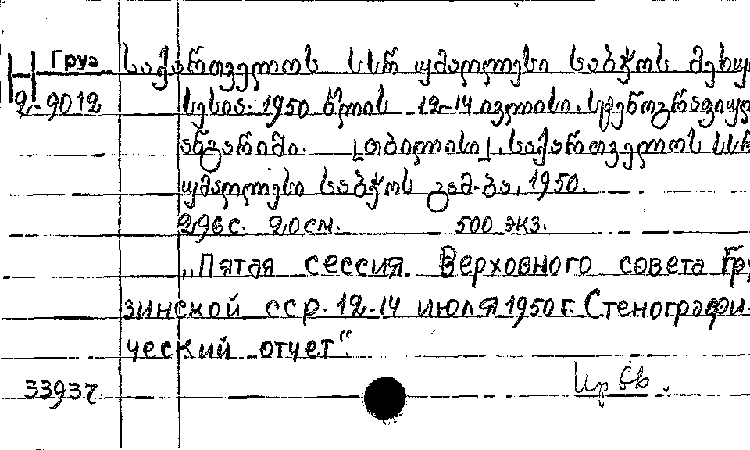 Груз საქართველოს სსრ უმაღლესი საბჭოს მეხუ
2-9012 სესია. 1950 წლის 12-14 ივლისი. სტენოგრაფიულ
ანგარიში. [თბილისი], საქართველოს სსრ
უმაღლესი საბჭოს გამ-ბა, 1950.
296 с. 20 см. 500 экз.
„Пятая сессия Верховного совета Гру
зинской сср. 12-14 июля 1950 г. Стенографи-
ческий отчет“.
33937